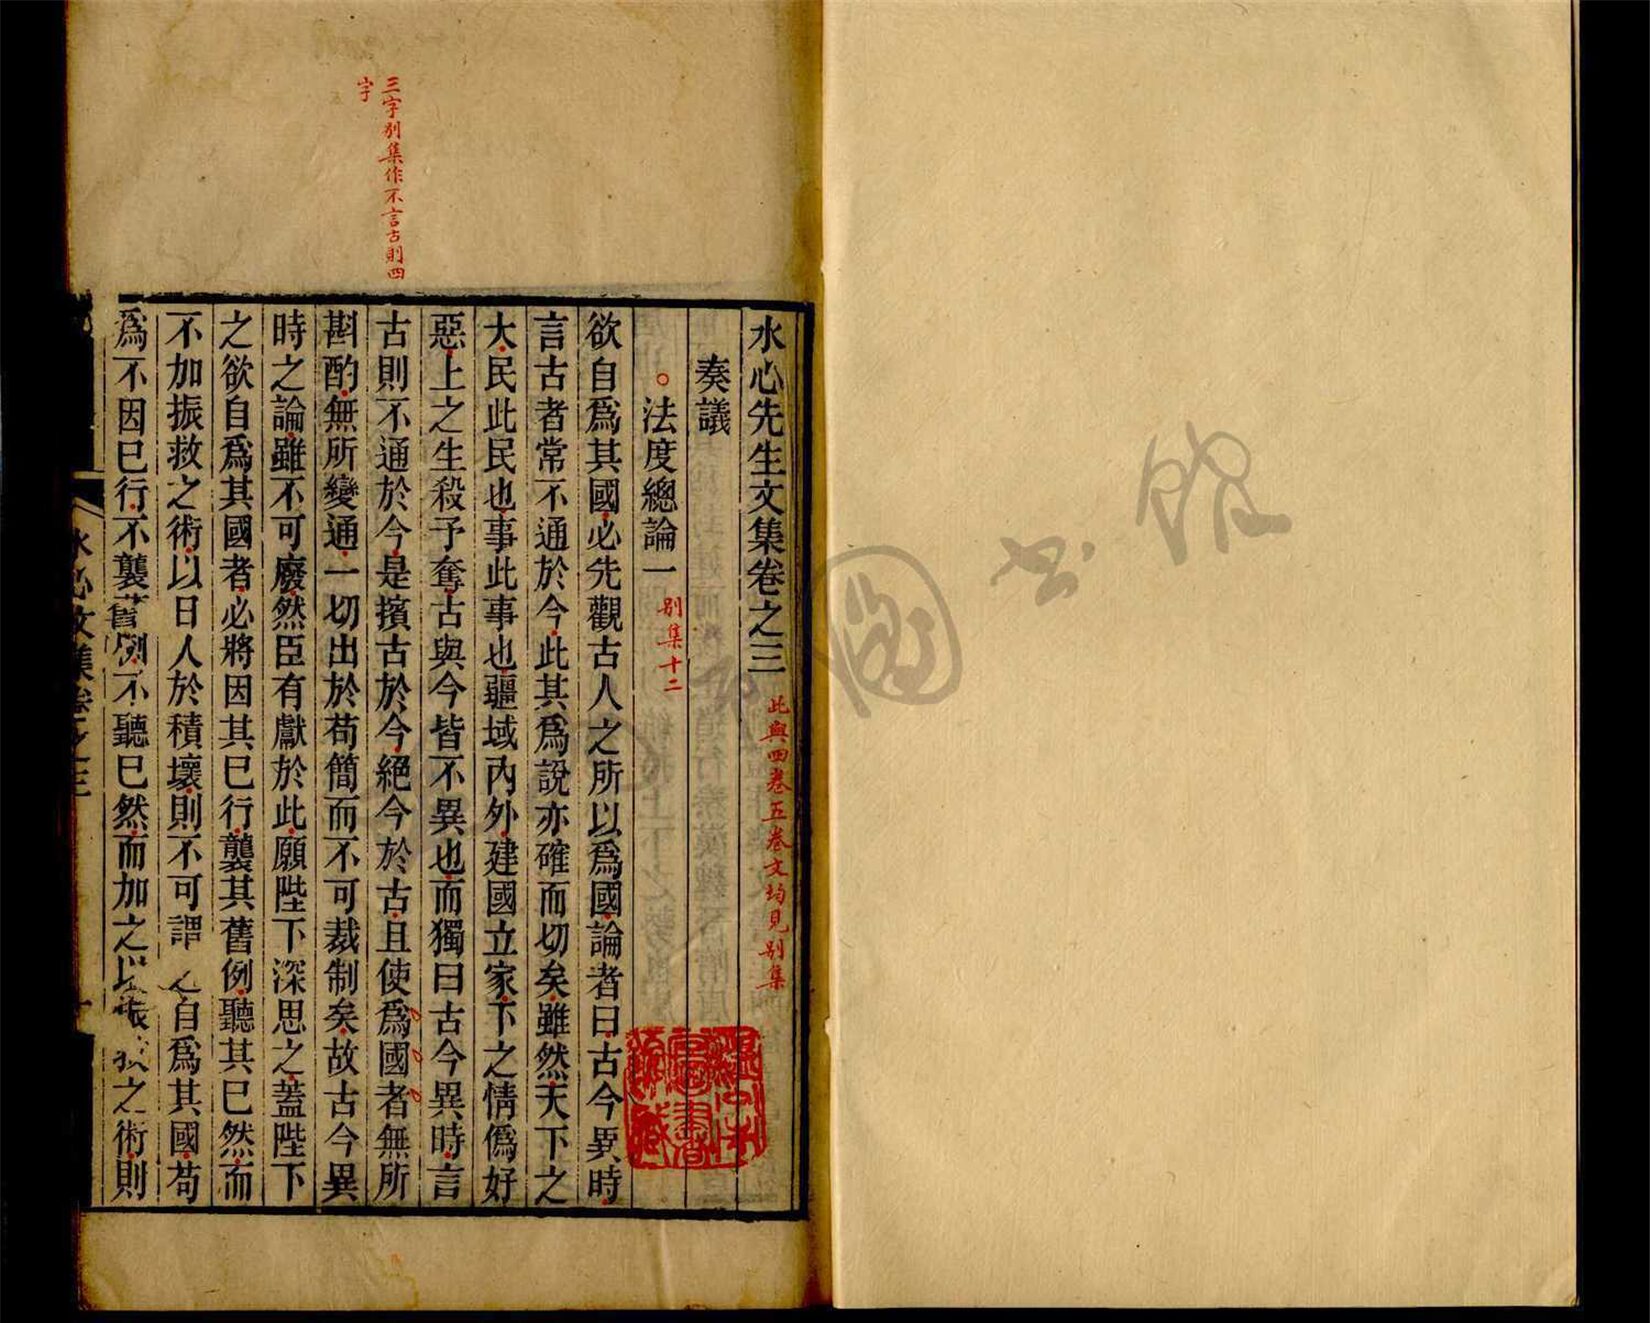 水心先生文集卷之三
此與四卷五卷文均見別集
奏議
法度總論一
別集十二
欲自爲其國必先觀古人之所以爲國論者曰古今異時
言古者常不通於今此其爲說亦確而切矣雖然天下之
大民此民也事此事也疆域內外建國立家下之情僞好
惡上之生殺予奪古與今皆不異也而獨曰古今異時言
古則不通於今是擯古於今絕今於古且使爲國者無所
斟酌無所變通一切出於苟簡而不可裁制矣故古今異
時之論雖不可廢然臣有獻於此願陛下深思之蓋陛下
之欲自爲其國者必將因其已行襲其舊例聽其已然而
不加振救之術以日人於積壞則不可謂之自爲其國苟
爲不因已行不襲舊例不聽已然而加之以振救之術則
三字別集作不言古則四
字
水心文集卷之三